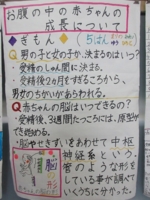 お腹の中の赤ちゃんの
成長について
◆ぎもん◆(5はん
Q 男の子と女の子が、決まるのはいつ?
・受精のしゅん間に決まる。
・受精後2ヵ月をすぎるころから、
男女のちがいがあらわれる。
Q 赤ちゃんの脳はいつできるの?
・受精後、3週間たつころには、原型が
でき始める。
・脳やせきずいをあわせて中枢
神経系という。
管のような形を
している事が調べて
いくうちに分かった。